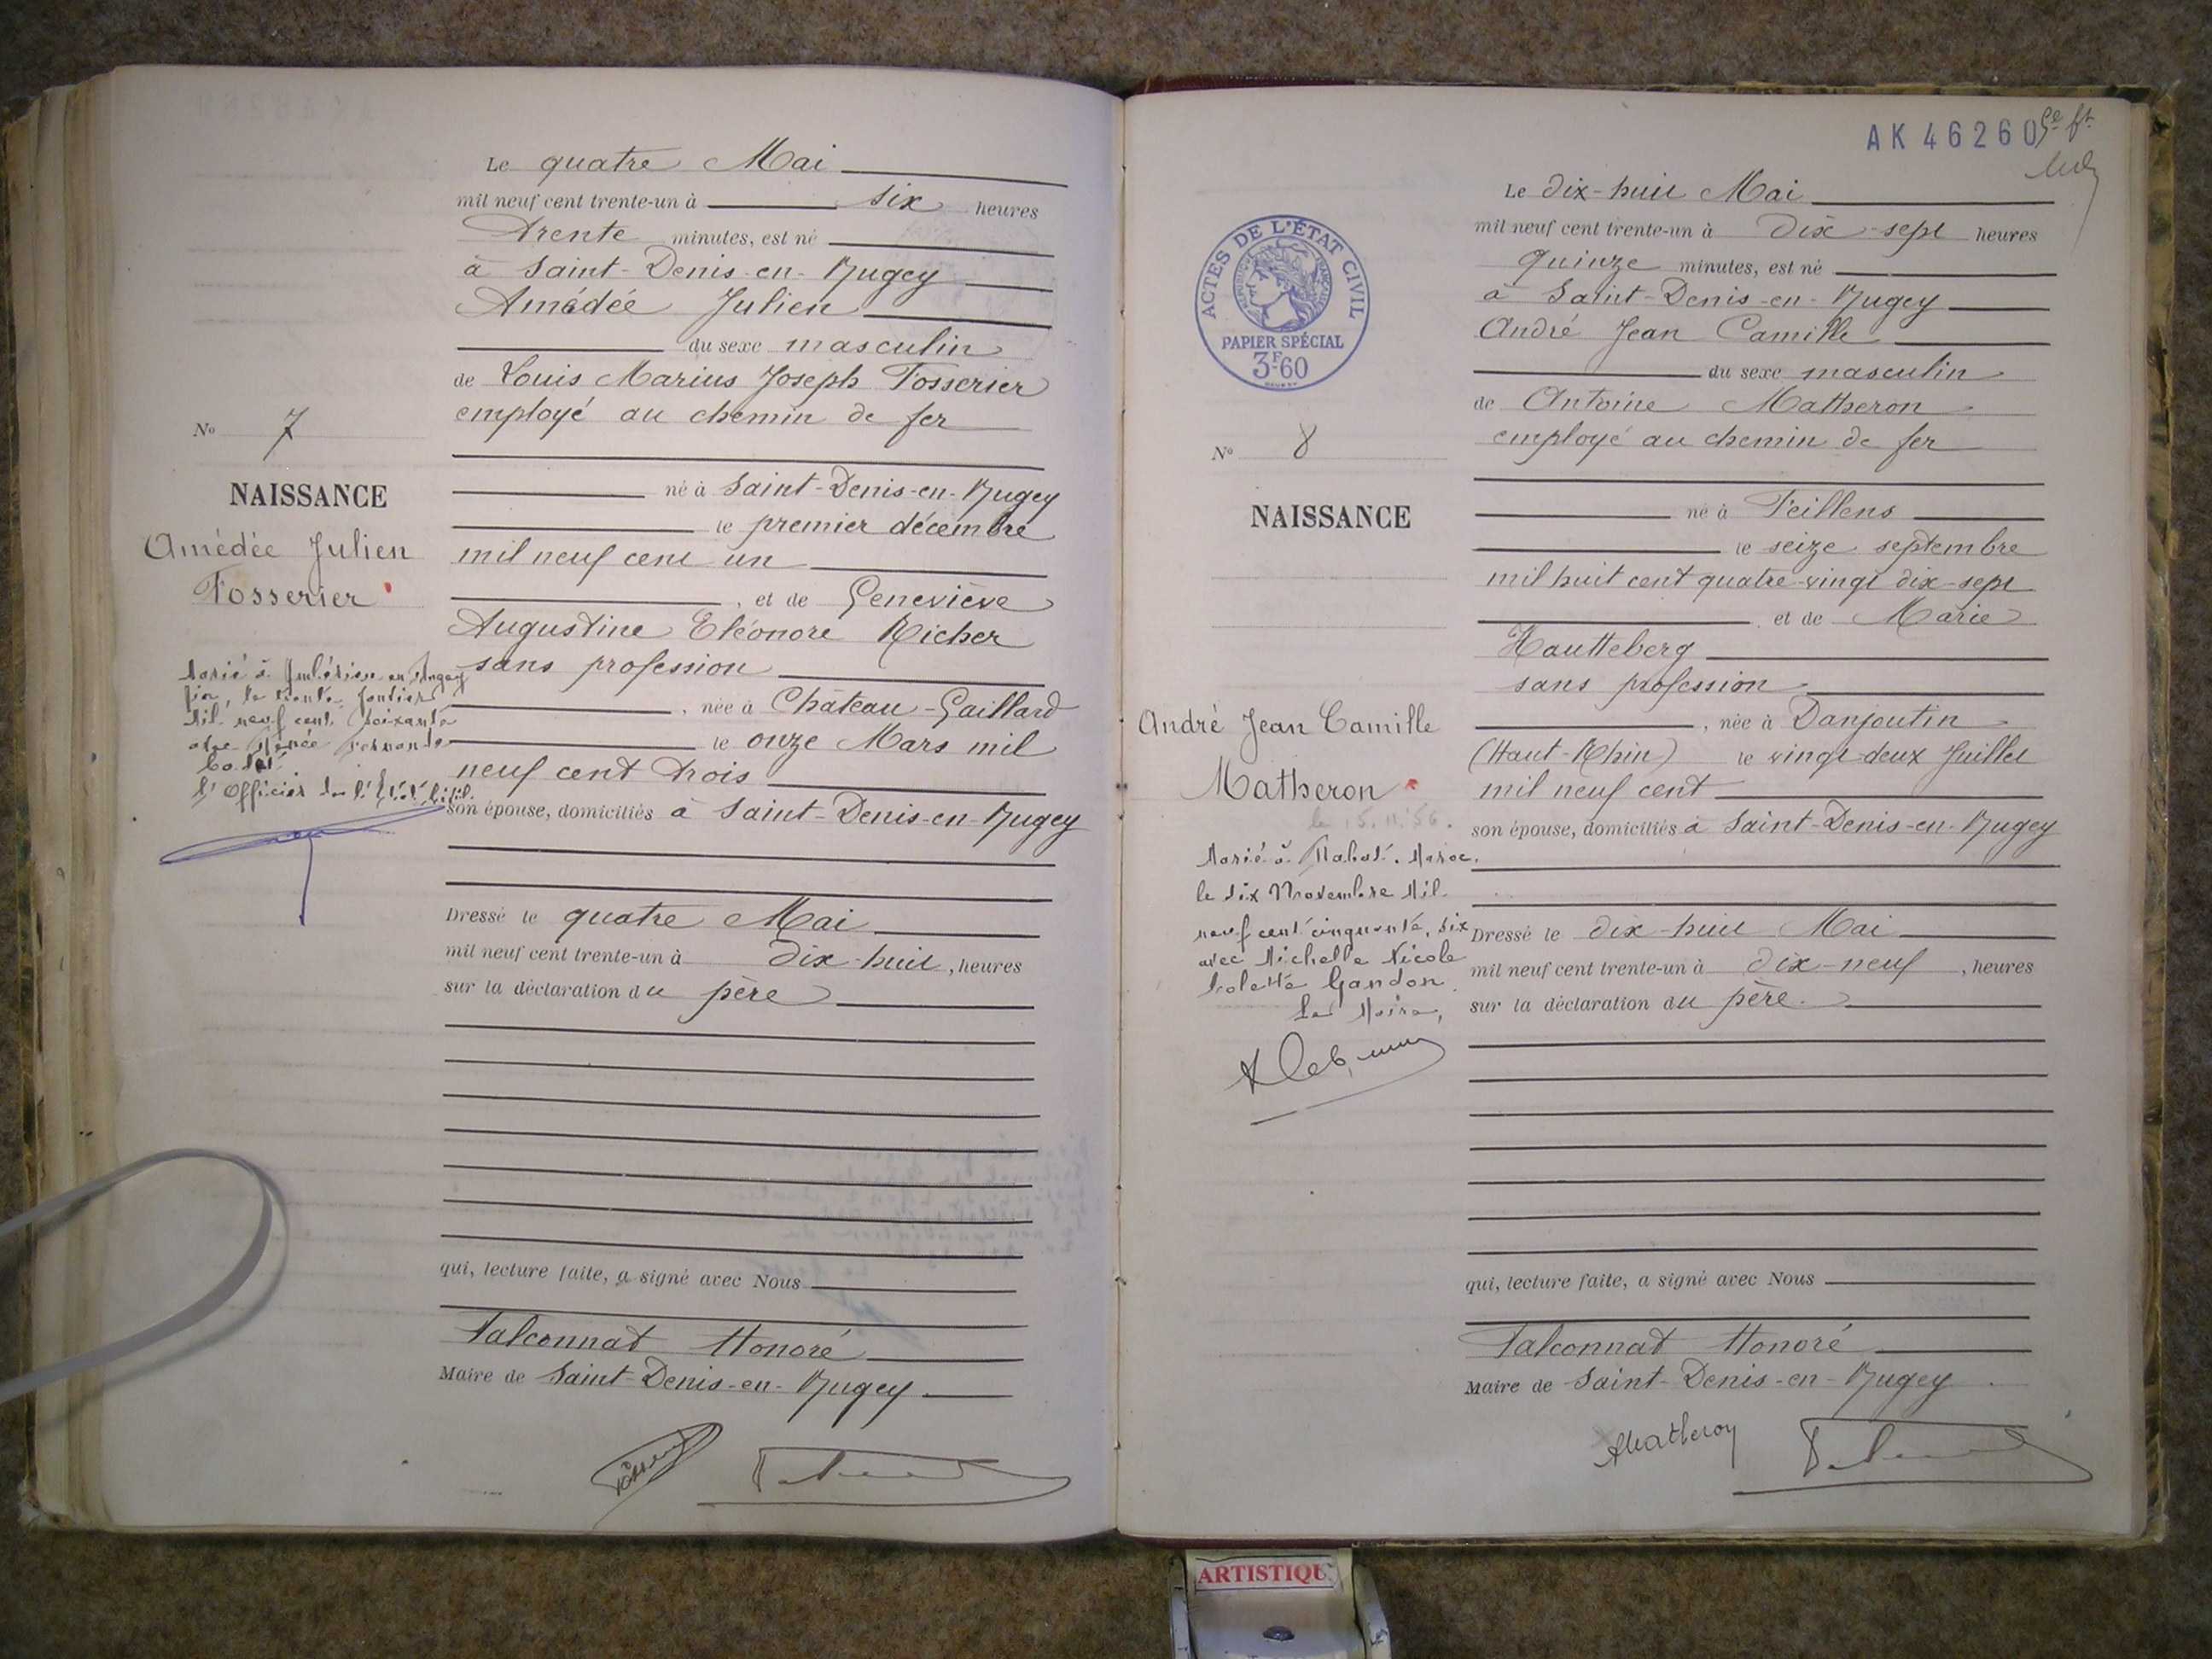 Le quatre Mai
mil neuf cent trente-un à six heures
trente minutes, est né
à Saint-Denis-en-Bugey
Amédée Julien
du sexe masculin
de Louis Marius Joseph Fosserier
employé au chemin de fer
No 7
né à Saint-Denis-en-Bugey
NAISSANCE
le premier décembre
Amédée Julien
mil neuf cent un
Fosserier
, et de Geneviève
Augustine Eléonore Richer
sans profession
Marié à Ambérieu en Bugey
, née à Château-Gaillard
Mil neuf cent soixante
le onze Mars mil
avec Renée Fernande
neuf cent trois
l'Officier de l'Etat Civil
son épouse, domiciliés à Saint-Denis-en-Bugey
Dressé le quatre Mai
mil neuf cent trente-un à dix-huit, heures
sur la déclaration du père
qui, lecture faite, a signé avec Nous
Falconnat Honoré
Maire de Saint-Denis-en-Bugey
AK 46260 5e ft
Le dix-huit Mai
mil neuf cent trente-un à dix-sept heures
quinze minutes, est né
à Saint-Denis-en-Bugey
André Jean Camille
du sexe masculin
de Antoine Matheron
employé au chemin de fer
ACTES DE L'ÉTAT CIVIL
RÉPUBLIQUE FRANÇAISE
PAPIER SPÉCIAL
3F60
No 8
NAISSANCE
né à Feillens
le seize septembre
mil huit cent quatre-vingt dix-sept
et de Marie
Hautteberg
sans profession
André Jean Camille
, née à Danjoutin
(Haut-Rhin) le vingt-deux Juillet
Matheron
mil neuf cent
le 15.11.56.
son épouse, domiciliés à Saint-Denis-en-Bugey
Marié à Rabat. Maroc.
le dix Novembre Mil
neuf cent cinquante, six
avec Michelle Nicole
Colette Gandon.
Le Maire,
Dressé le dix-huit Mai
mil neuf cent trente-un à dix-neuf, heures
sur la déclaration du père.
qui, lecture faite, a signé avec Nous
Falconnat Honoré
Maire de Saint-Denis-en-Bugey
AMatheron
ARTISTIQU